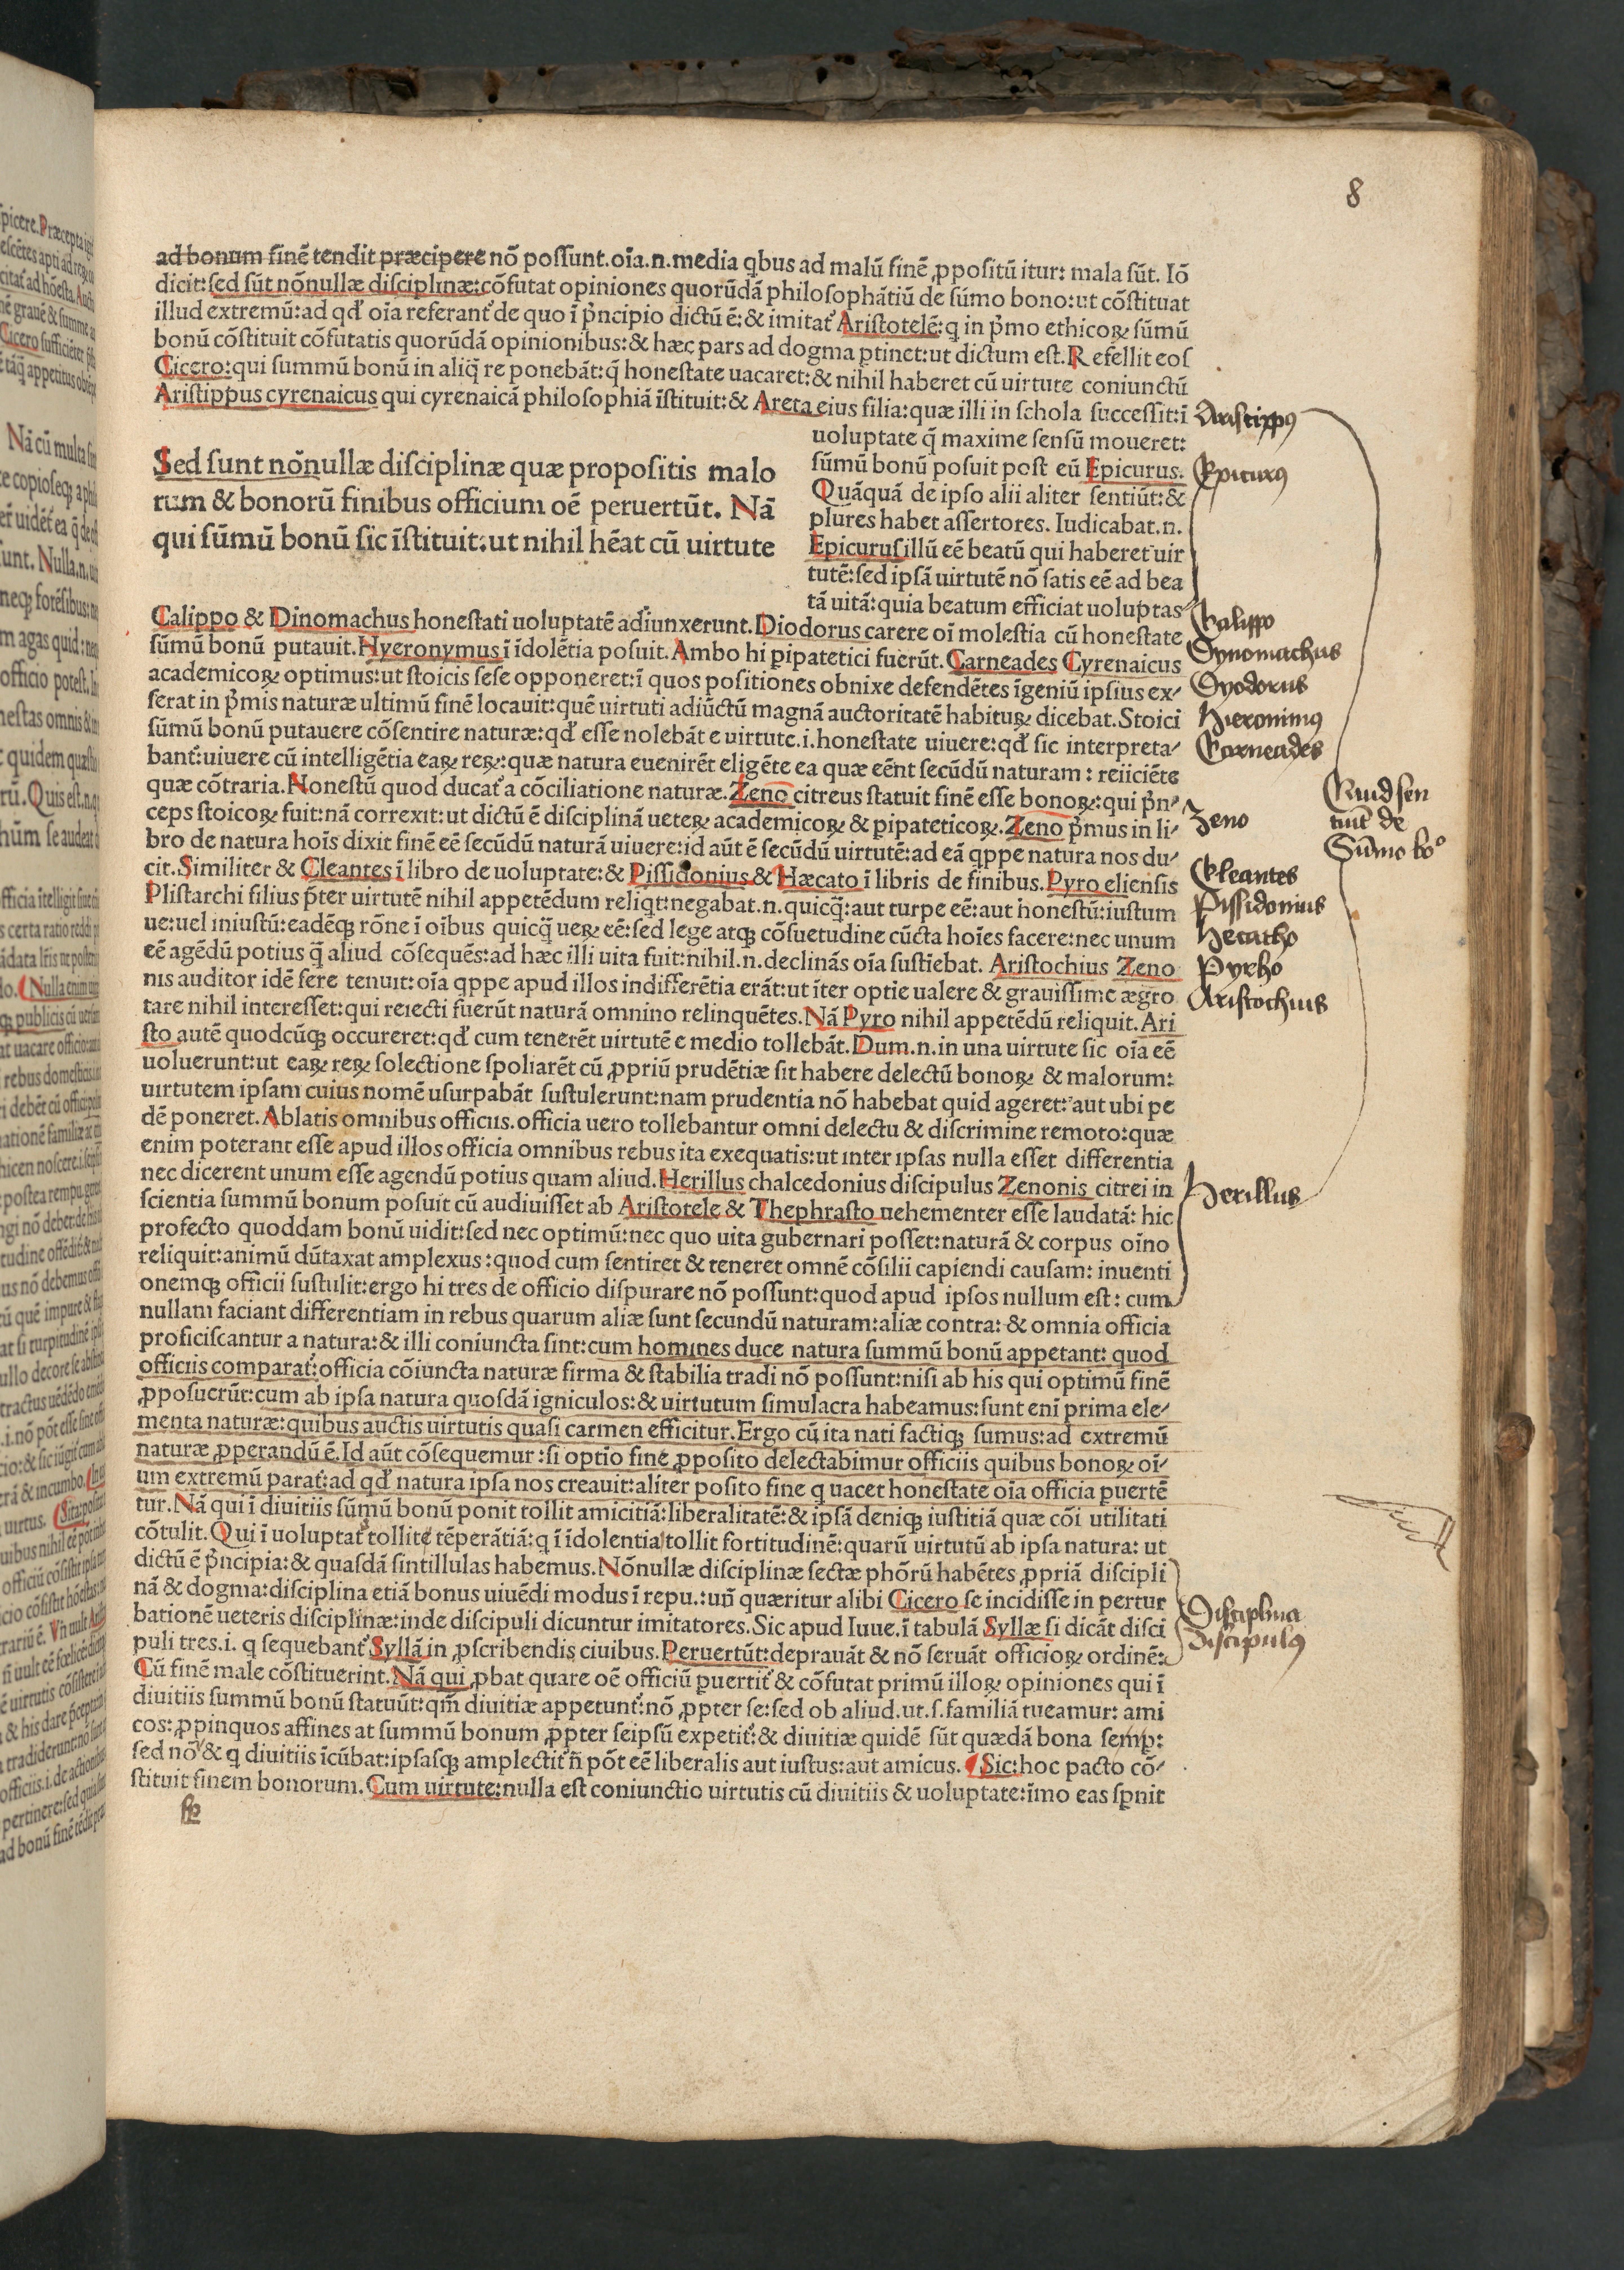 8
ad bonum finē tendit præcipere nō poſſunt.oīa.n.media qbus ad malū finē ꝓpoſitū itur: mala ſūt. Iō
dicit:ſed ſūt nōnullæ diſciplinæ:cōfutat opiniones quorūdā philoſophātiū de ſūmo bono:ut cōſtituat
illud extremū:ad qđ oīa referant̃ de quo ī p̃ncipio dictū ē:& imitat̃ Ariſtotelē:q in p̃mo ethicoꝝ ſūmū
bonū cōſtituit cōfutatis quorūdā opinionibus:& hæc pars ad dogma ꝑtinet:ut dictum eſt.Refellit eoſ
Cicero:qui ſummū bonū in aliq̄ re ponebāt:q̄ honeſtate uacaret:& nihil haberet cū uirtute coniunctū
Ariſtippus cyrenaicus qui cyrenaicā philoſophiā īſtituit:& Areta eius filia:quæ illi in ſchola ſucceſſit:ī
uoluptate q̄ maxime ſenſū moueret:
ſūmū bonū poſuit poſt eū Epicurus.
Quāquā de ipſo alii aliter ſentiūt:&
plures habet aſſertores. Iudicabat.n.
Epicuruſ illū eē beatū qui haberet uir
tutē:ſed ipſā uirtutē nō ſatis eē ad bea
tā uitā:quia beatum efficiat uoluptas
Sed ſunt nōnullæ diſciplinæ quæ propoſitis malo
rum & bonorū finibus officium oē peruertūt. Nā
qui ſūmū bonū ſic īſtituit:ut nihil hēat cū uirtute
Calippo & Dinomachus honeſtati uoluptatē adiunxerunt.Diodorus carere oī moleſtia cū honeſtate
ſūmū bonū putauit.Hyeronymus ī īdolētia poſuit.Ambo hi ꝑipatetici fuerūt.Carneades Cyrenaicus
academicoꝝ optimus:ut ſtoicis ſeſe opponeret:ī quos poſitiones obnixe defendētes īgeniū ipſius ex-
ſerat in p̃mis naturæ ultimū finē locauit:quē uirtuti adiūctū magnā auctoritatē habituꝝ dicebat.Stoici
ſūmū bonū putauere cōſentire naturæ:qđ eſſe nolebāt e uirtute.i.honeſtate uiuere:qđ ſic interpreta-
bant̃:uiuere cū intelligētia eaꝝ reꝝ:quæ natura euenirēt eligēte ea quæ eēnt ſecūdū naturam: reiiciēte
quæ cōtraria.Noneſtū quod ducat̃ a cōciliatione naturæ.Zeno citreus ſtatuit finē eſſe bonoꝝ:qui p̃n-
ceps ſtoicoꝝ fuit:nā correxit:ut dictū ē diſciplinā ueteꝝ academicoꝝ & ꝑipateticoꝝ.Zeno p̃mus in li-
bro de natura hoīs dixit finē eē ſecūdū naturā uiuere:id aūt ē ſecūdū uirtutē:ad eā qppe natura nos du-
cit.Similiter & Cleantes ī libro de uoluptate:& Piſſidonius & Hæcato ī libris de finibus.Pyro elienſis
Pliſtarchi filius p̃ter uirtutē nihil appetēdum reliqt:negabat.n.quicq̄:aut turpe eē:aut honeſtū:iuſtum
ue:uel iniuſtū:eadēqꝫ rōne ī oībus quicq̄ ueꝝ eē:ſed lege atqꝫ cōſuetudine cūcta hoīes facere:nec unum
eē agēdū potius q̄ aliud cōſequēs:ad hæc illi uita fuit:nihil.n.declinās oīa ſuſtiebat. Ariſtochius Zeno
nis auditor idē fere tenuit:oīa qppe apud illos indifferētia erāt:ut īter optie ualere & grauiſſime ægro
tare nihil intereſſet:qui reiecti fuerūt naturā omnino relinquētes.Nā Pyro nihil appetēdū reliquit.Ari
ſto autē quodcūqꝫ occureret:qđ cum tenerēt uirtutē e medio tollebāt.Dum.n.in una uirtute ſic oīa eē
uoluerunt:ut eaꝝ reꝝ ſolectione ſpoliarēt cū ꝓpriū prudētiæ ſit habere delectū bonoꝝ & malorum:
uirtutem ipſam cuius nomē uſurpabāt ſuſtulerunt:nam prudentia nō habebat quid ageret:aut ubi pe
dē poneret.Ablatis omnibus officiis.officia uero tollebantur omni delectu & diſcrimine remoto:quæ
enim poterant eſſe apud illos officia omnibus rebus ita exequatis:ut inter ipſas nulla eſſet differentia
nec dicerent unum eſſe agendū potius quam aliud.Herillus chalcedonius diſcipulus Zenonis citrei in
ſcientia ſummū bonum poſuit cū audiuiſſet ab Ariſtotele & Thephraſto uehementer eſſe laudatā: hic
profecto quoddam bonū uidit:ſed nec optimū:nec quo uita gubernari poſſet:naturā & corpus oīno
reliquit:animū dūtaxat amplexus:quod cum ſentiret & teneret omnē cōſilii capiendi cauſam: inuenti
onemqꝫ officii ſuſtulit:ergo hi tres de officio diſpurare nō poſſunt:quod apud ipſos nullum eſt: cum
nullam faciant differentiam in rebus quarum aliæ ſunt ſecundū naturam:aliæ contra: & omnia officia
proficiſcantur a natura:& illi coniuncta ſint:cum homines duce natura ſummū bonū appetant: quod
officiis comparat̃:officia cōiuncta naturæ firma & ſtabilia tradi nō poſſunt:niſi ab his qui optimū finē
ꝓpoſuerūt:cum ab ipſa natura quoſdā igniculos:& uirtutum ſimulacra habeamus:ſunt enī prima ele-
menta naturæ:quibus auctis uirtutis quaſi carmen efficitur.Ergo cū ita nati factiqꝫ ſumus:ad extremū
naturæ ꝓperandū ē.Id aūt cōſequemur:ſi optīo fine ꝓpoſito delectabimur officiis quibus bonoꝝ oī-
um extremū parat̃:ad qđ natura ipſa nos creauit:aliter poſito fine q uacet honeſtate oīa officia ꝑuertē
tur.Nā qui ī diuitiis ſūmū bonū ponit tollit amicitiā:liberalitatē:& ipſā deniqꝫ iuſtitiā quæ cōi utilitati
cōtulit.Qui ī uoluptat̃ tollite tēperātiā:q ī īdolentia tollit fortitudinē:quarū uirtutū ab ipſa natura: ut
dictū ē p̃ncipia:& quaſdā ſintillulas habemus.Nōnullæ diſciplinæ ſectæ phōrū habētes ꝓpriā diſcipli
nā & dogma:diſciplina etiā bonus uiuēdi modus ī repu.:uñ quæritur alibi Cicero ſe incidiſſe in pertur
bationē ueteris diſciplinæ:inde diſcipuli dicuntur imitatores.Sic apud Iuue.ī tabulā Syllæ ſi dicāt diſci
puli tres.i. q ſequebant̃ Syllā in ꝓſcribendis ciuibus.Peruertūt:deprauāt & nō ſeruāt officioꝝ ordinē:
Cū finē male cōſtituerint.Nā qui ꝓbat quare oē officiū ꝑuertit̃ & cōfutat primū illoꝝ opiniones qui ī
diuitiis ſummū bonū ſtatuūt:qm̄ diuitiæ appetunt̃:nō ꝓpter ſe:ſed ob aliud.ut.ſ.familiā tueamur: ami
cos:ꝓpinquos affines at ſummū bonum ꝓpter ſeipſū expetit̃:& diuitiæ quidē ſūt quædā bona ſemp:
ſed nō & q diuitiis īcūbat:ipſaſqꝫ amplectit̃ ñ pōt eē liberalis aut iuſtus:aut amicus. Sic:hoc pacto cō-
ſtituit finem bonorum.Cum uirtute:nulla eſt coniunctio uirtutis cū diuitiis & uoluptate:īmo eas ſꝑnit
Ariſtippꝰ
Epicurꝰ
Calippo
Dynomachus
Dyodorus
Hieronimꝰ
Carneades
Quid ſen
tiūt de
Sūmo boº
Zeno
Cleantes
Piſſidonius
Hecatho
Pyrho
Ariſtochius
Herillus
Diſciplina
diſcipulꝰ